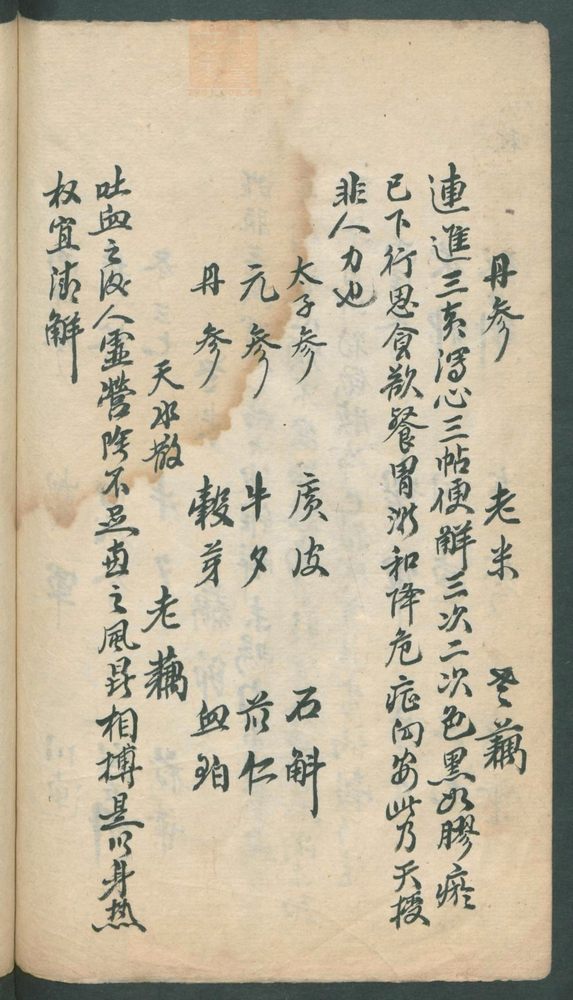 丹参 老米 老藕
連進三黄瀉心三帖便解三次二次色黑如膠瘀
已下行思食欲餐胃漸和降危症向安此乃天授
非人力也
太子参 廣皮 石斛
元参 牛夕 苡仁
丹参 穀芽 血珀
天水散 老藕
吐血之後人靈營陰不足 之風 相搏是以身热
权宜清解